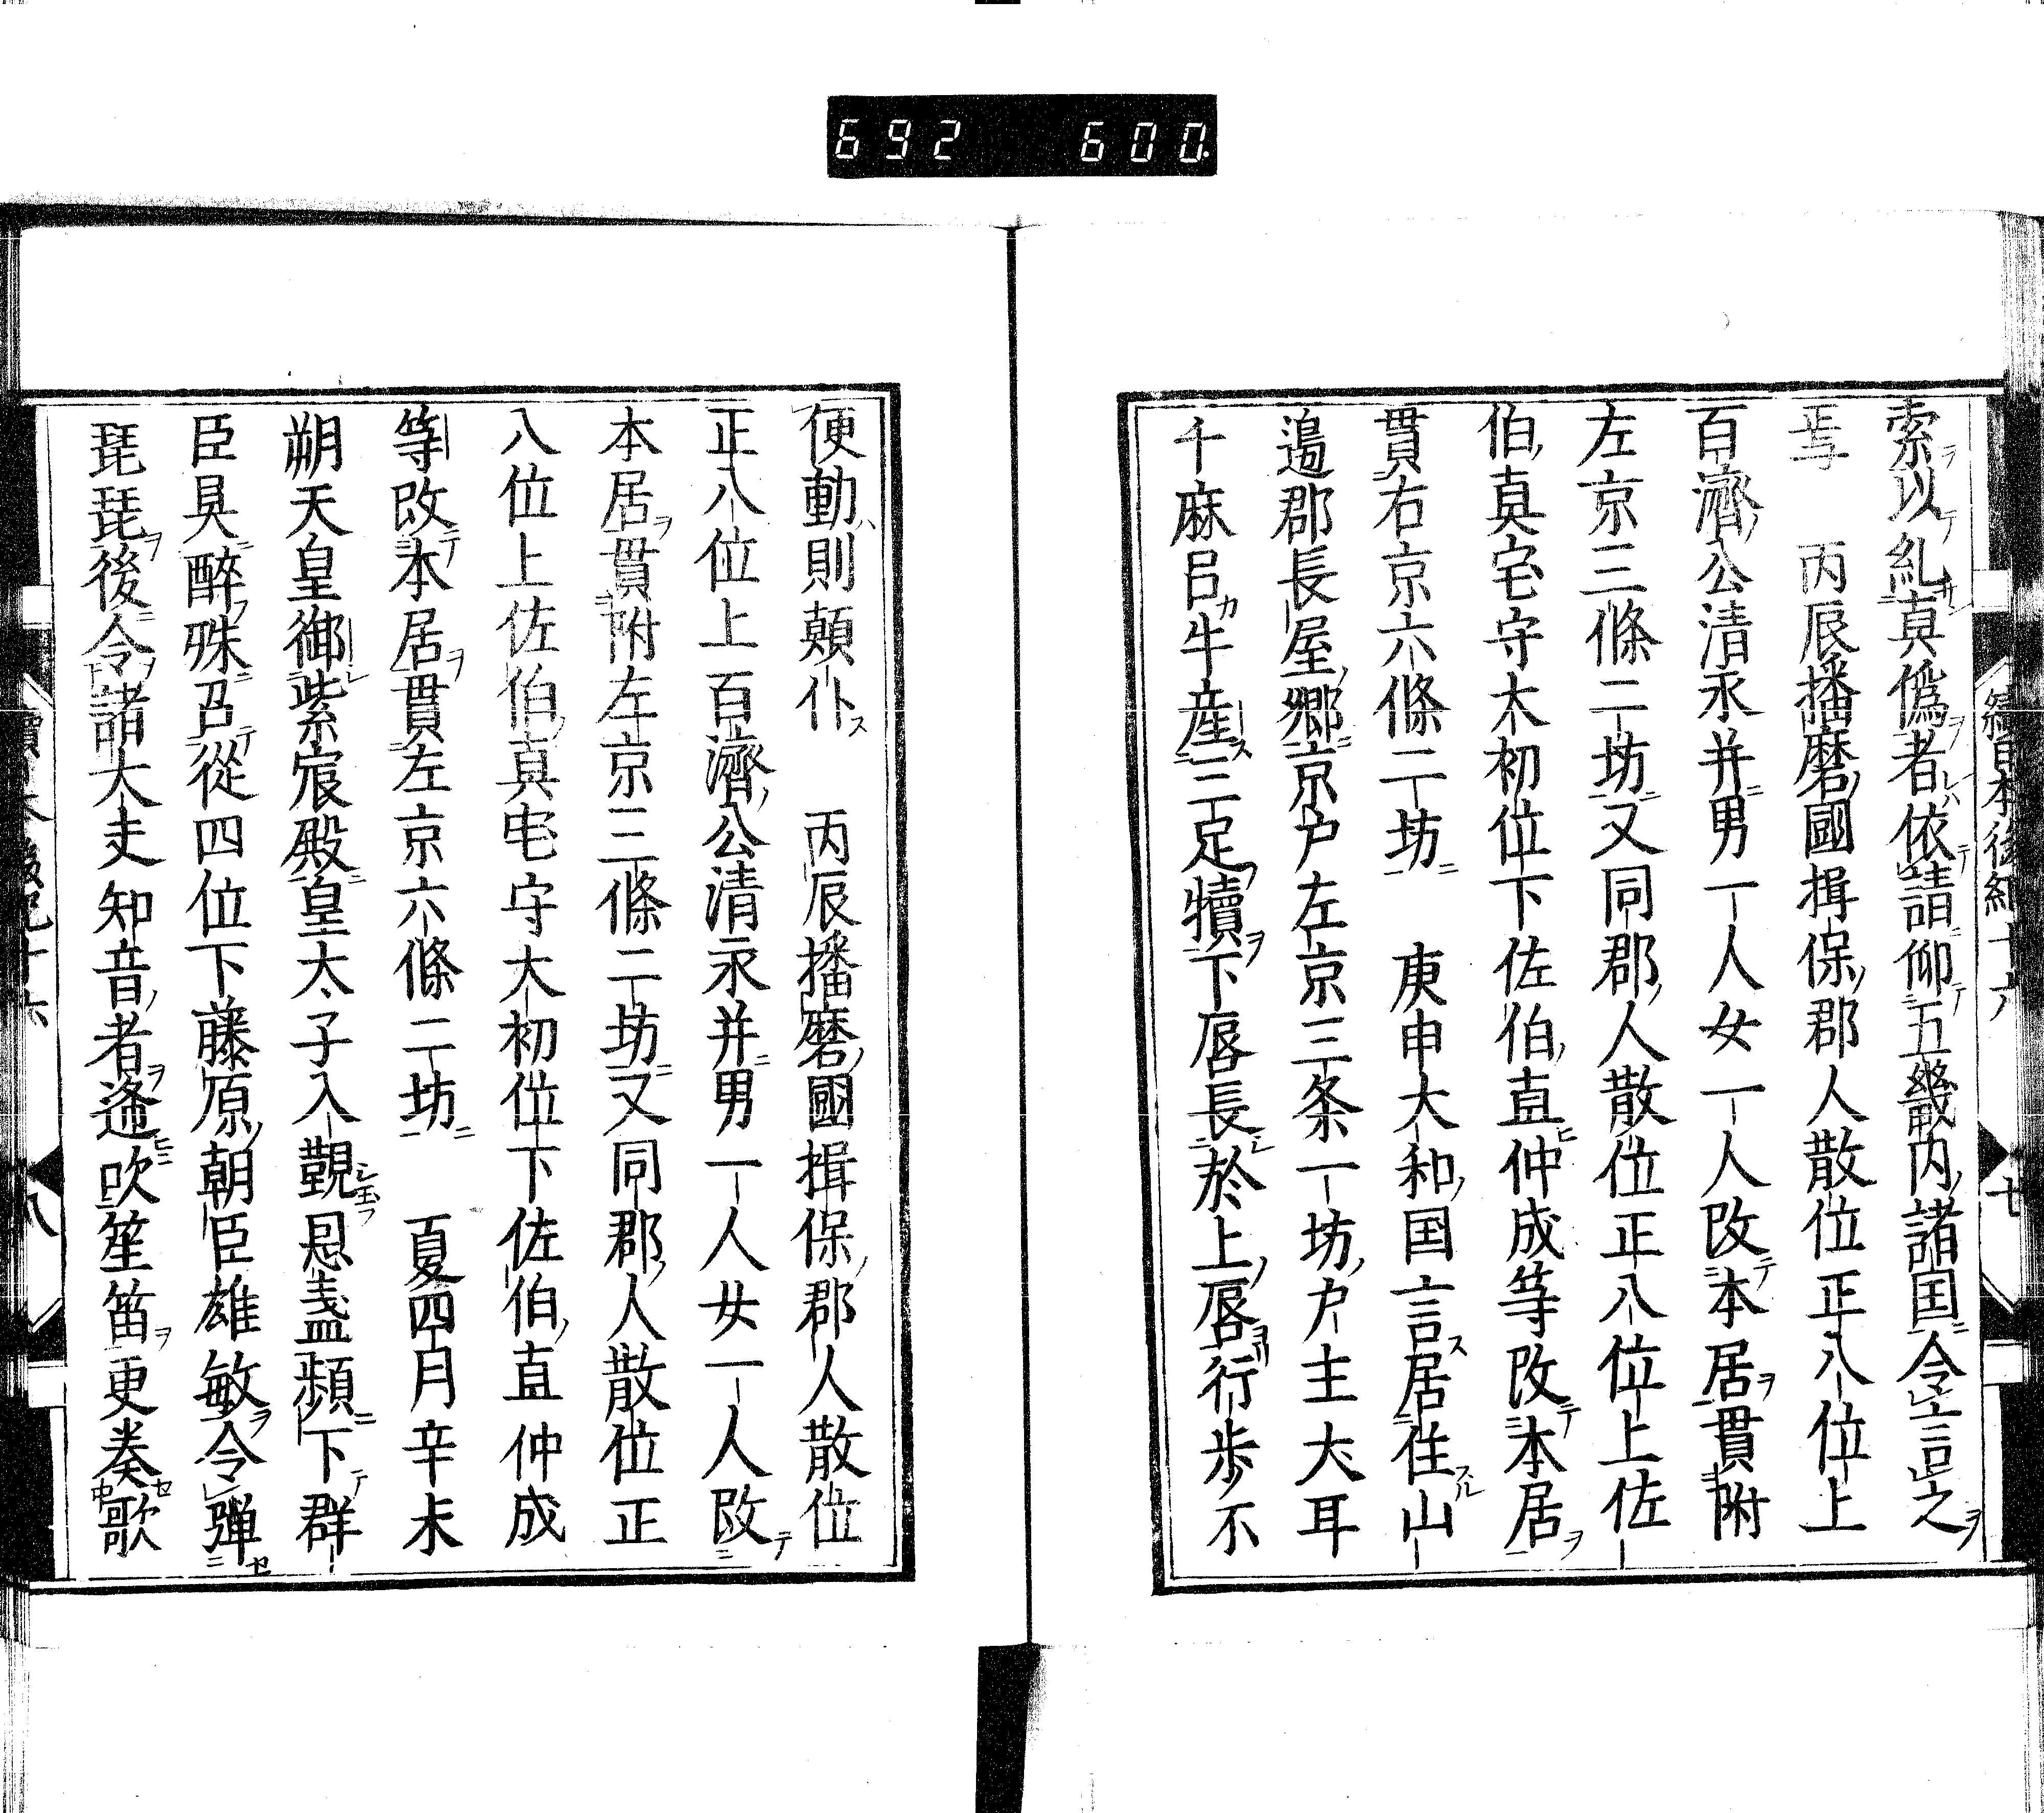 692 600
續日本後紀十六
七
索以糺真僞者依請仰五畿内諸国令言之
焉 丙辰播磨國揖保郡人散位正八位上
百濟公清永并男一人女一人改本居貫附
左京三條二坊又同郡人散位正八位上佐
伯真宅守大初位下佐伯直仲成等改本居
貫右京六條二坊 庚申大和国言居住山
邉郡長屋郷京户左京三条一坊户主大耳
千麻呂牛産三足犢下唇長於上唇行歩不
便動則顛仆 丙辰播磨國揖保郡人散位
正八位上百濟公清永并男一人女一人改
本居貫附左京三條二坊又同郡人散位正
八位上佐伯真宅守大初位下佐伯直仲成
等改本居貫左京六條二坊 夏四月辛未
朔天皇御紫宸殿皇太子入覲恩盞頻下群
臣具醉殊召從四位下藤原朝臣雄敏令弾
琵琶後令諸大夫知音者遞吹笙笛更奏歌
八